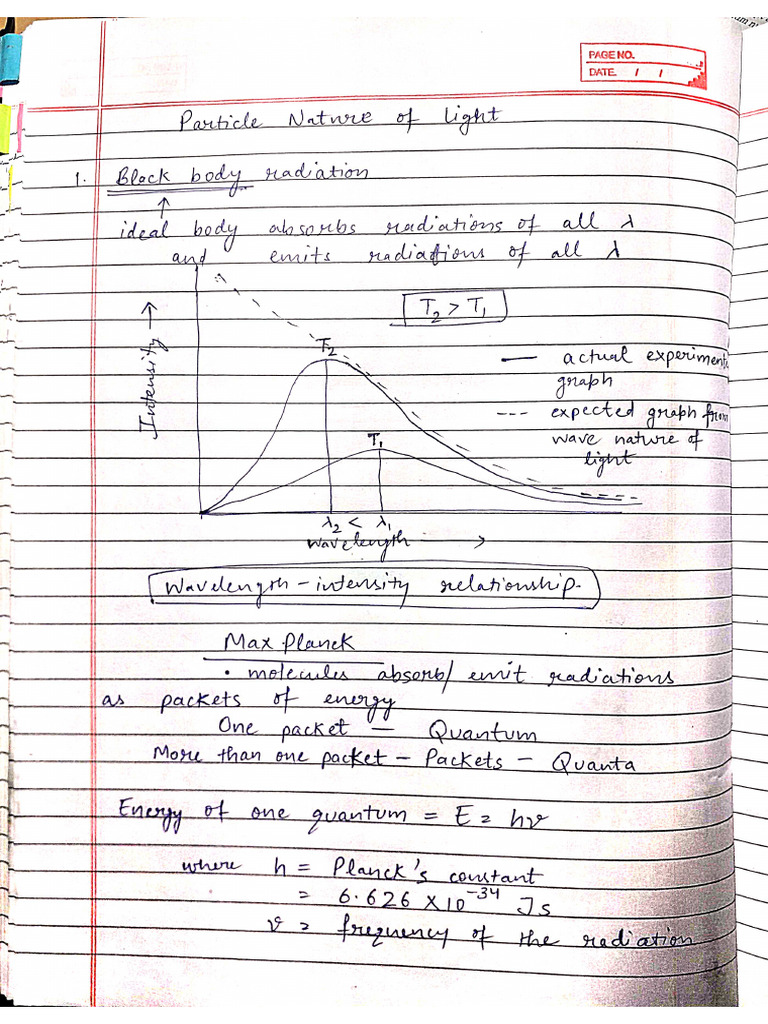 PAGE NO.
DATE / /
Particle Nature of light
1. Black body radiation
ideal body absorbs radiations of all λ
and emits radiations of all λ
T₂ > T₁
Intensity →
T₂
— actual experiment
graph
--- expected graph from
wave nature of
light
T₁
λ₂ < λ₁
wavelength →
Wavelength - intensity relationship.
Max Planck
• molecules absorb/ emit radiations
as packets of energy
One packet — Quantum
More than one packet - Packets - Quanta
Energy of one quantum = E = hν
where h = Planck's constant
= 6.626 × 10⁻³⁴ Js
ν = frequency of the radiation